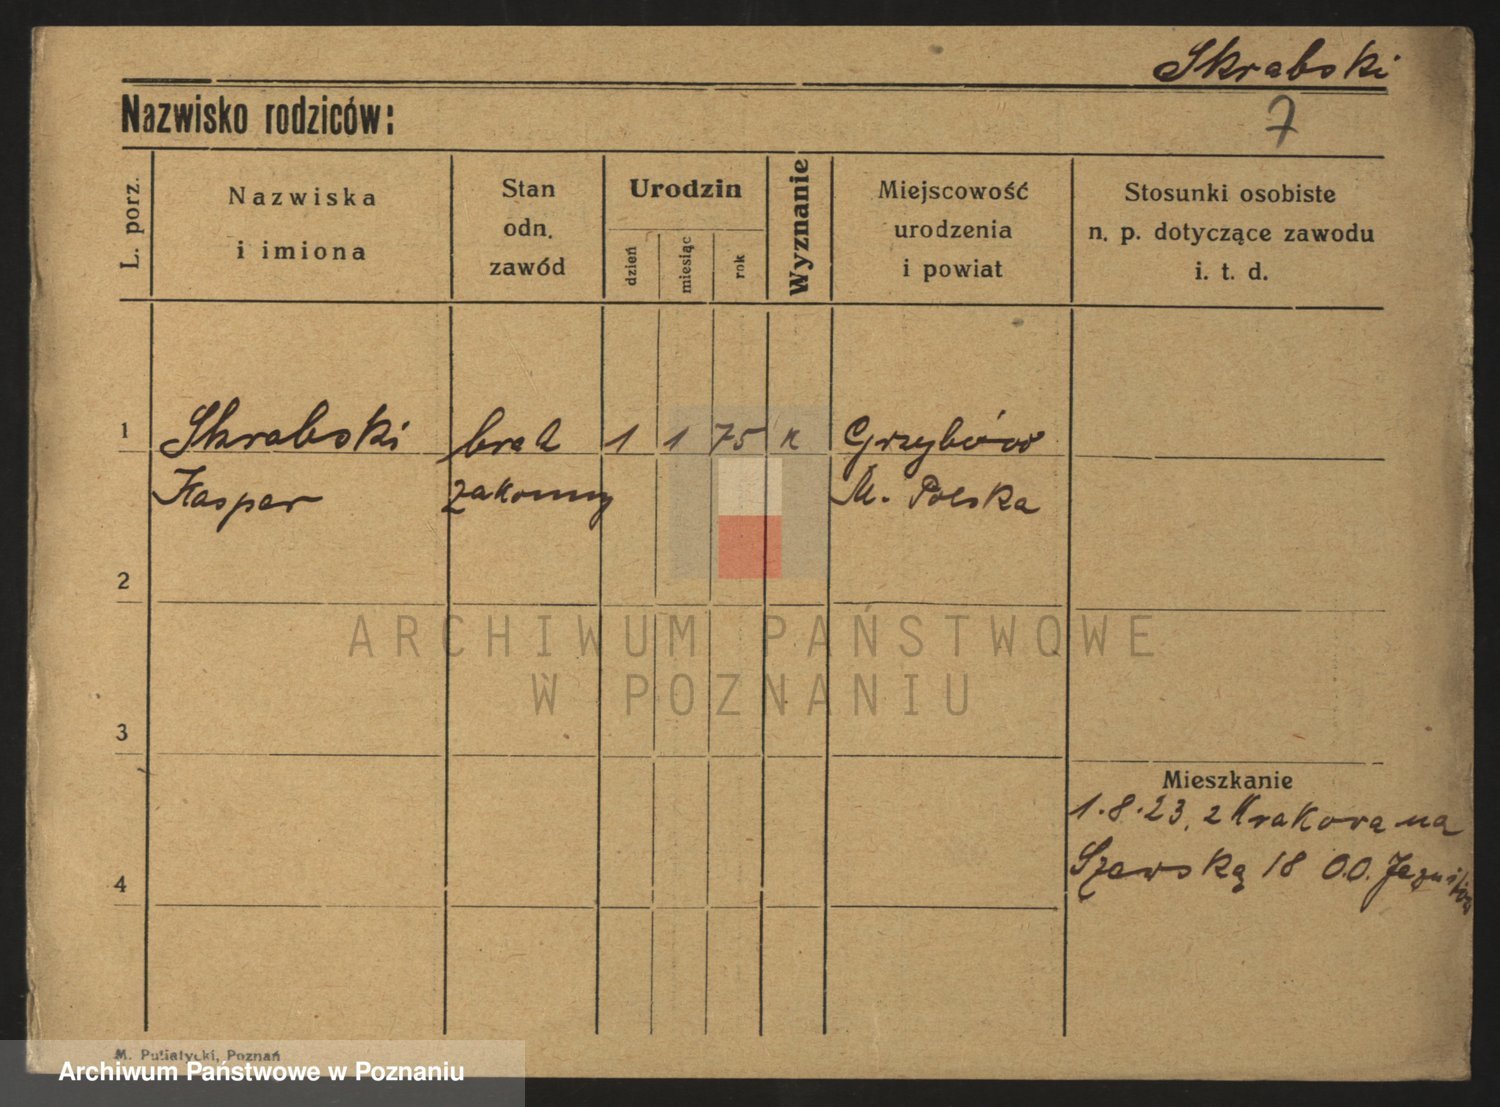 Skrabski
Nazwisko rodziców:
7
L. porz.
Nazwiska
i imiona
Stan
odn.
zawód
Urodzin
dzień
miesiąc
rok
Wyznanie
Miejscowość
urodzenia
i powiat
Stosunki osobiste
n. p. dotyczące zawodu
i. t. d.
1 Skrabski brat 1 1 75 k Grzybów
Kaspar zakonny M. Polska
2
3
4
Mieszkanie
1.8.23. z Krakowa na
Szewską 18 O.O. Jezuitów
ARCHIWUM PAŃSTWOWE
W POZNANIU
M. Putiatycki, Poznań
Archiwum Państwowe w Poznaniu